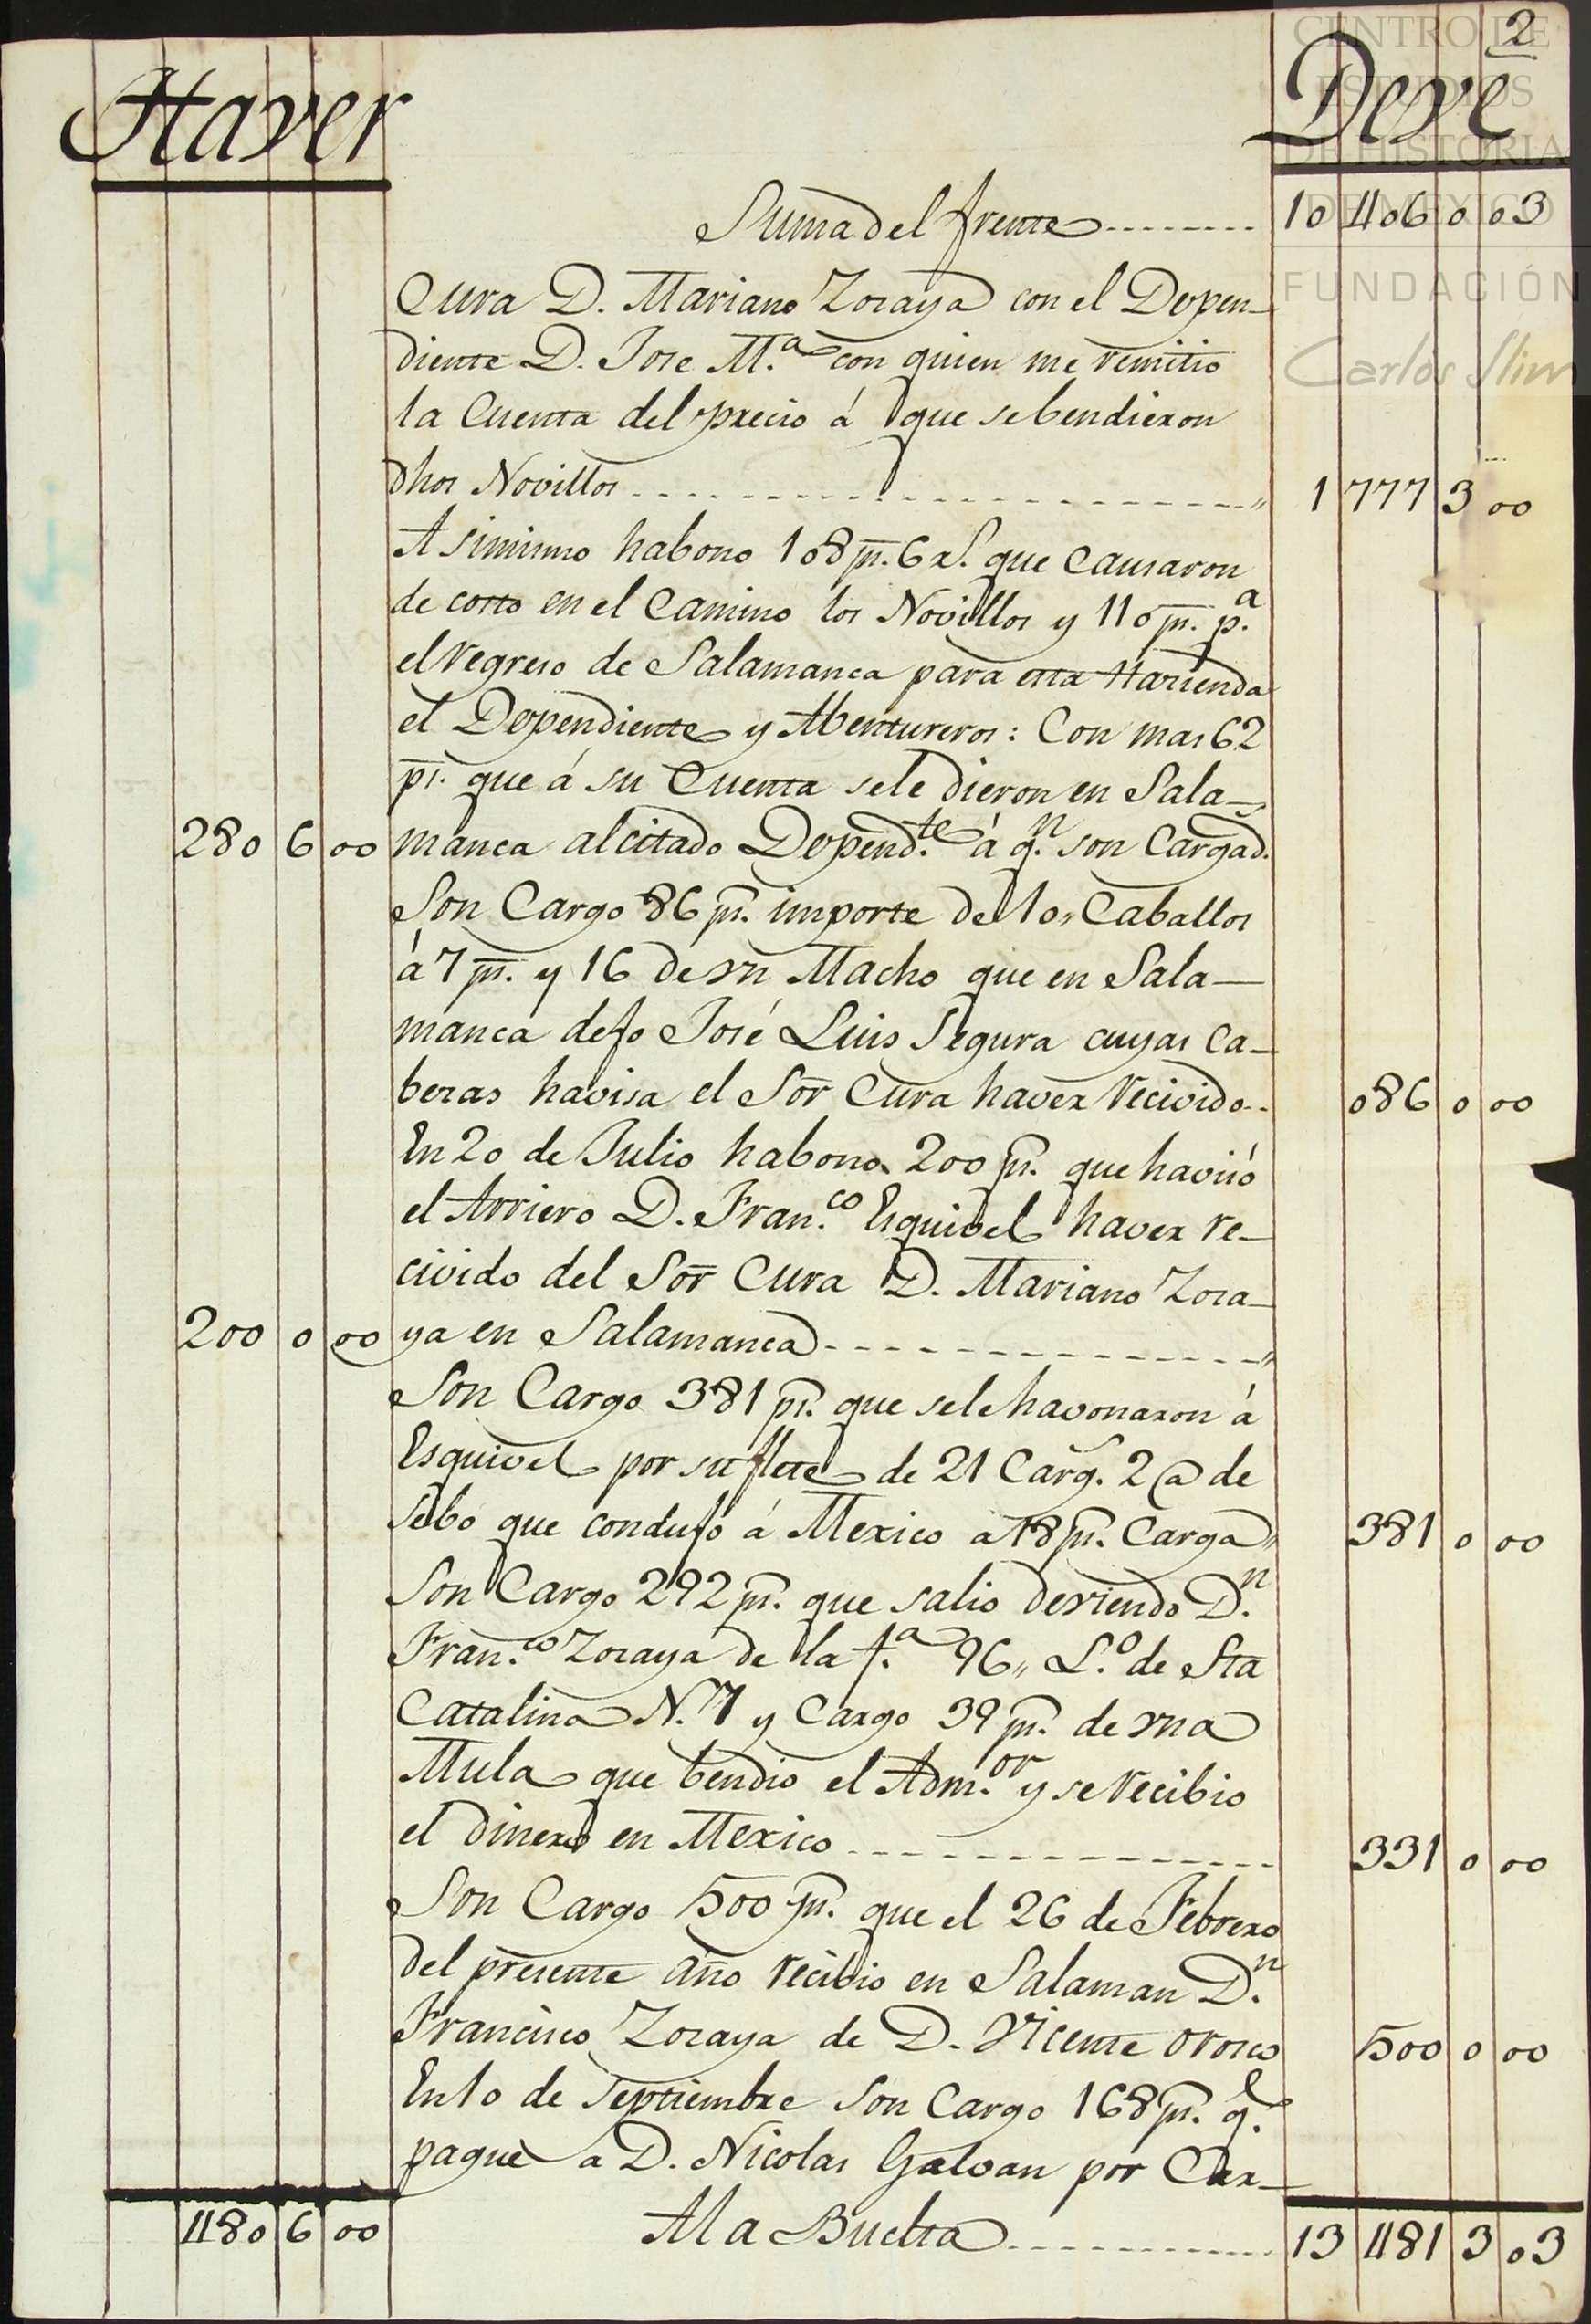 2
Haver Deve
Suma del frente 10 406 0 03
Cura D. Mariano Zoraya con el Depen-
diente D. Jose M.ª con quien me remitio
la Cuenta del precio á que se bendieron
dhos Novillos 1 777 3 00
Asimismo habono 108 ps. 6 rs. que Causaron
de costo en el Camino los Novillos y 110 ps. p.ª
el regreso de Salamanca para esta Hazienda
el Dependiente y Abentureros: Con mas 62
ps. que á su Cuenta sele dieron en Sala-
280 6 00 manca al citado Depend.te á q.n son Cargad.
Son Cargo 86 ps. importe de 10,, Caballos
á 7 ps. y 16 de vn Macho que en Sala-
manca dejo José Luis Segura cuyas Ca-
bezas havisa el Sor Cura haver recivido 086 0 00
En 20 de Julio habono 200 ps. que havisó
el Arriero D. Fran.co Esquivel haver re-
civido del Sor Cura D. Mariano Zora-
200 0 00 ya en Salamanca
Son Cargo 381 ps. que sele havonaron á
Esquivel por su flete de 21 Carg.s 2 @ de
sebo que condujo á Mexico a 18 ps. Carga 381 0 00
Son Cargo 292 ps. que salio deviendo D.n
Fran.co Zoraya de la f.ª 96,, L.o de Sta
Catalina N. 7 y Cargo 39 ps. de vna
Mula que bendio el Adm.or y se recibio
el dinero en Mexico 331 0 00
Son Cargo 500 ps. que el 26 de Febrero
del presente año recibio en Salaman D.n
Francisco Zoraya de D. Vicente Orosco 500 0 00
En 10 de Septiembre son Cargo 168 ps. q.e
paguè a D. Nicolas Galvan por Car-
480 6 00 A la Buelta 13 481 3 03
CENTRO DE
ESTUDIOS
DE HISTORIA
DE MÉXICO
FUNDACIÓN
Carlos Slim